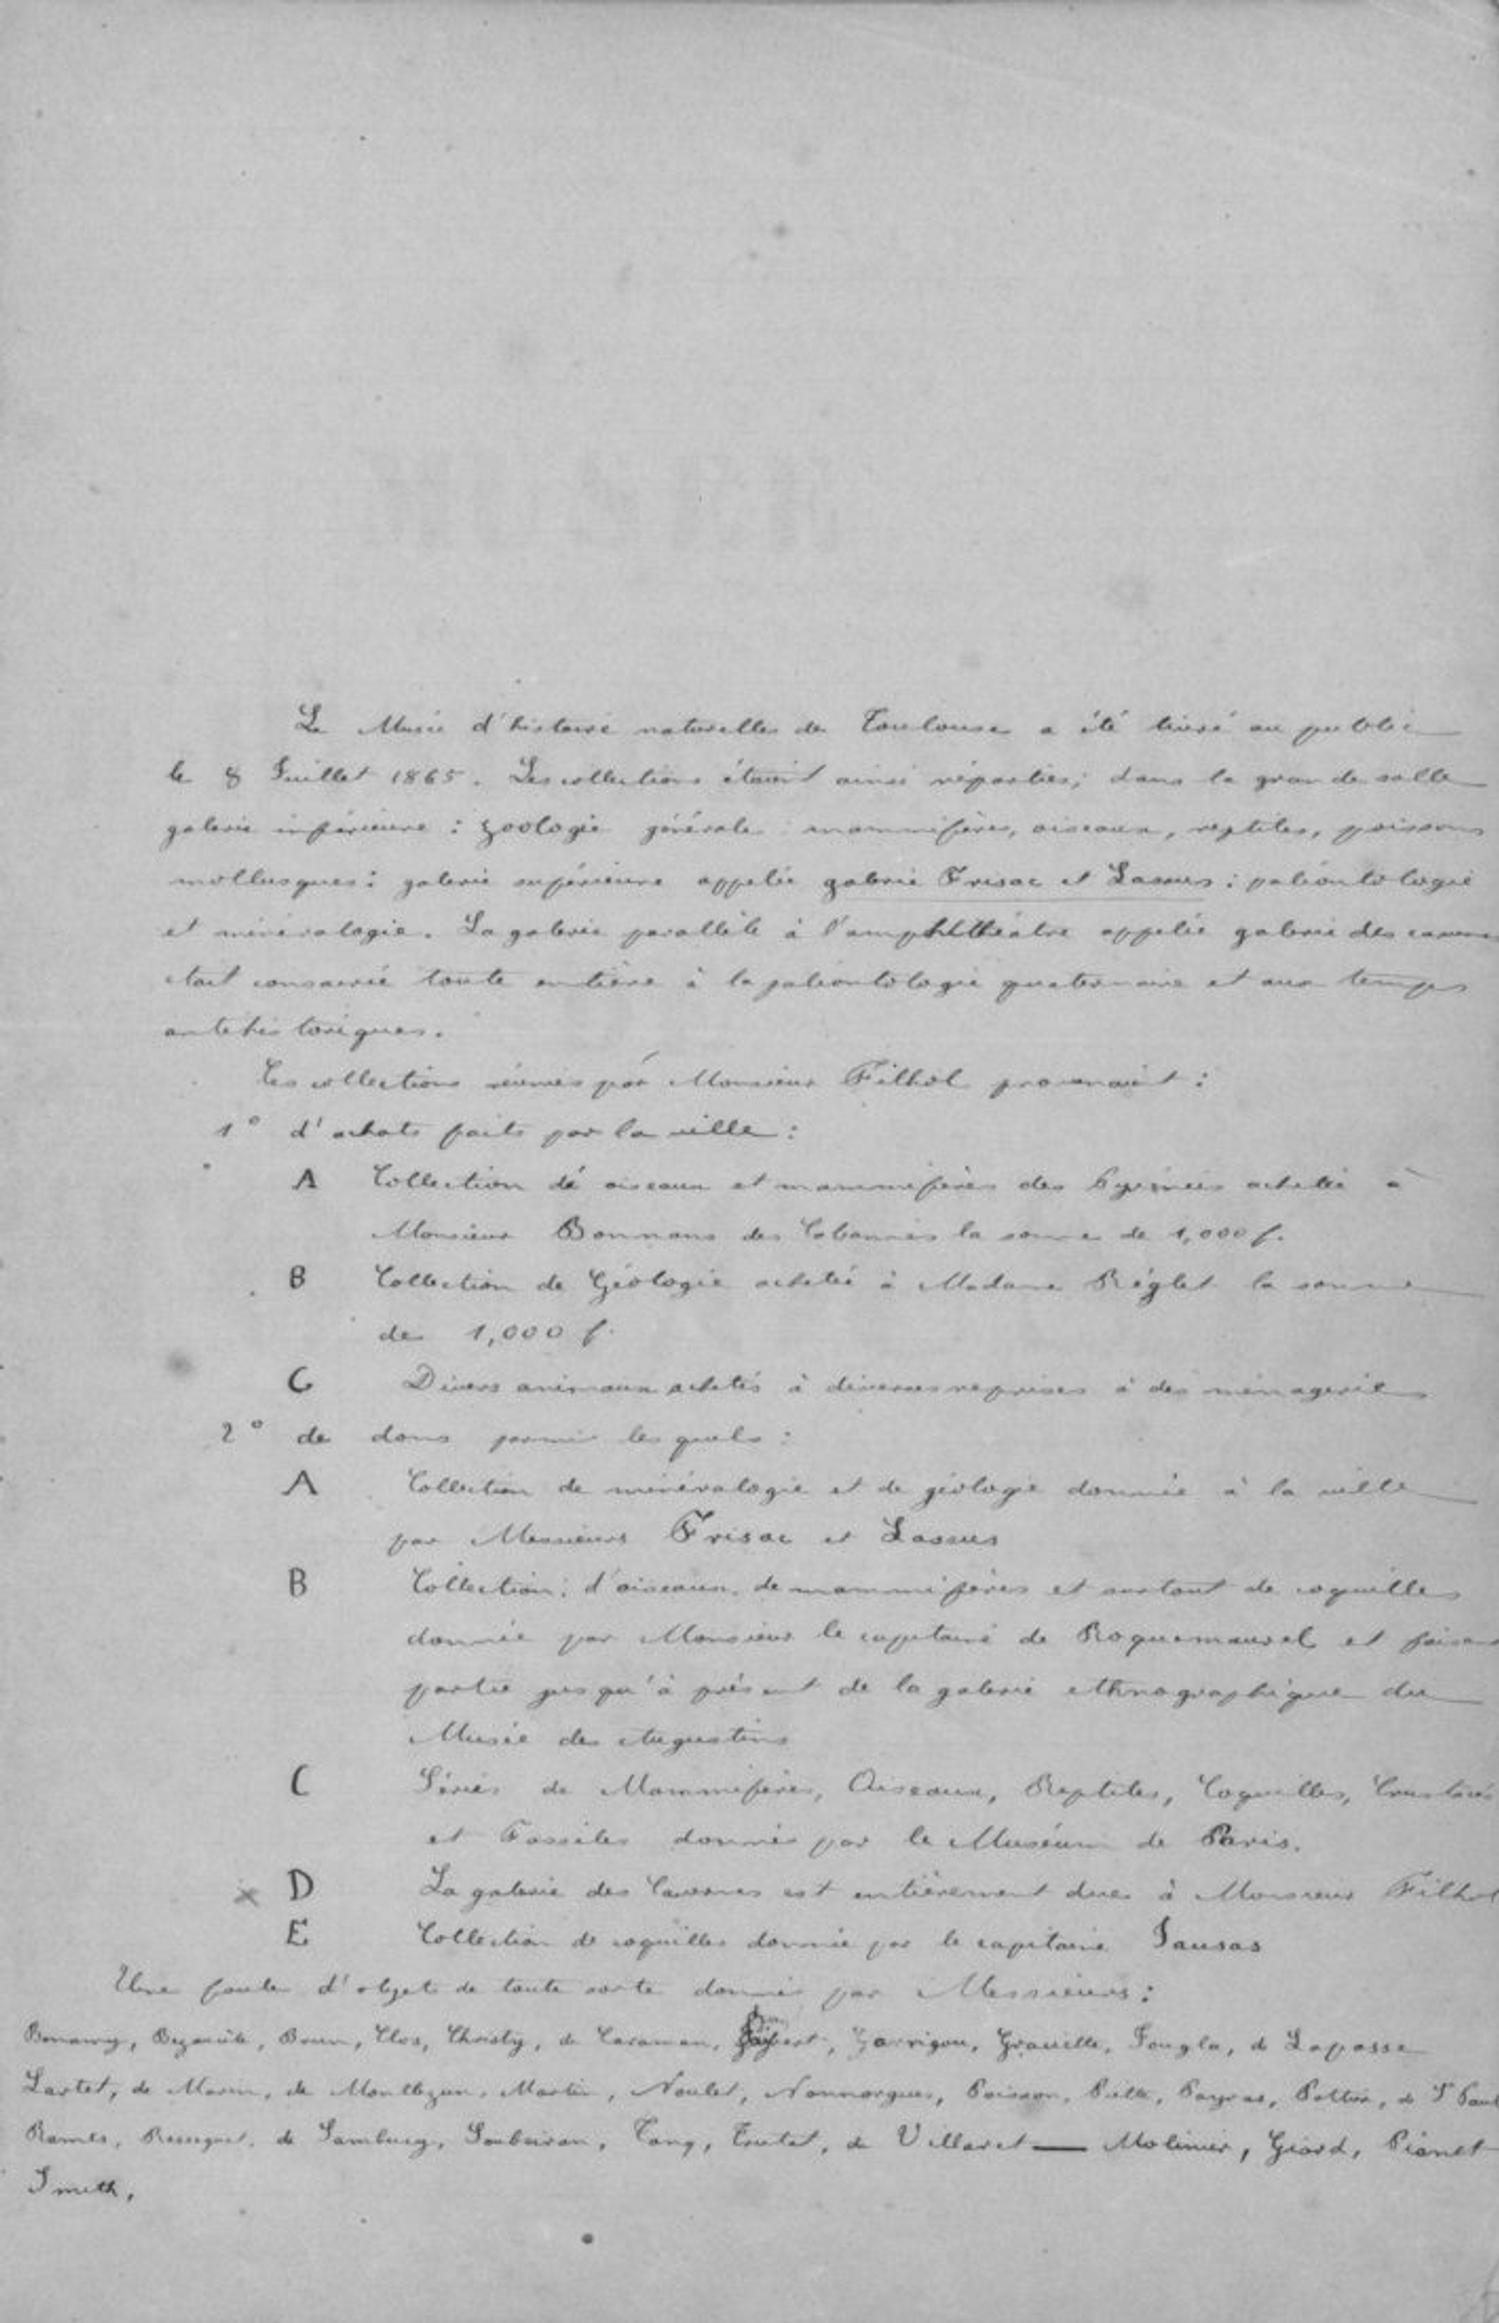 Le Musée d'histoire naturelles de Toulouse a été livré au public
le 8 Juillet 1865. Les collections étaient ainsi réparties; dans la grande salle
galerie inférieure : zoologie générale mammifères, oiseaux, reptiles, poissons
mollusques : galerie supérieure appelée galerie Frisac et Lassus : paléontologie
et minéralogie. La galerie parallèle à l'amphithéatre appelée galerie des cavernes
était consacrée toute entière à la paléontologie quaternaire et aux temps
antehistoriques.
Les collections réunies par Monsieur Filhol provenaient :
1° d'achats faits par la ville :
A Collection de oiseaux et mammifères des Pyrénées achetée à
Monsieur Bonnans des Cabannes la somme de 1,000 f.
B Collection de Géologie achetée à Madame Réglet la somme
de 1,000 f.
C Divers animaux achetés à diverses reprises à des ménageries
2° de dons parmi les quels :
A Collection de minéralogie et de géologie donnée à la ville
par Messieurs Frisac et Lassus
B Collection : d'oiseaux, de mammifères et surtout de coquilles
donnée par Monsieur le capitaine de Roquemaurel et faisant
partie jusqu'à présent de la galerie ethnographique du
Musée des Augustins
C Séries de Mammifères, Oiseaux, Reptiles, Coquilles, Crustacés
et Fossiles donnés par le Muséum de Paris.
x D La galerie des Cavernes est entièrement due à Monsieur Filhol
E Collection de coquilles donnée par le capitaine Jausas
Une foule d'objets de toute sorte donnés par Messieurs :
Bonamy, Brun, Clos, Christy, de Caraman, Garrigou, Fougla, de Lapasse
Lartet, de Marin, de Montlezun, Martin, Noulet, Nonnorgues, Poisson, Pottier, de St Paul
Rames, Resseguet, de Sambucy, Soubeiran, Tany, Trutat, de Villaret — Molinier, Giard, Pianet
Smith,